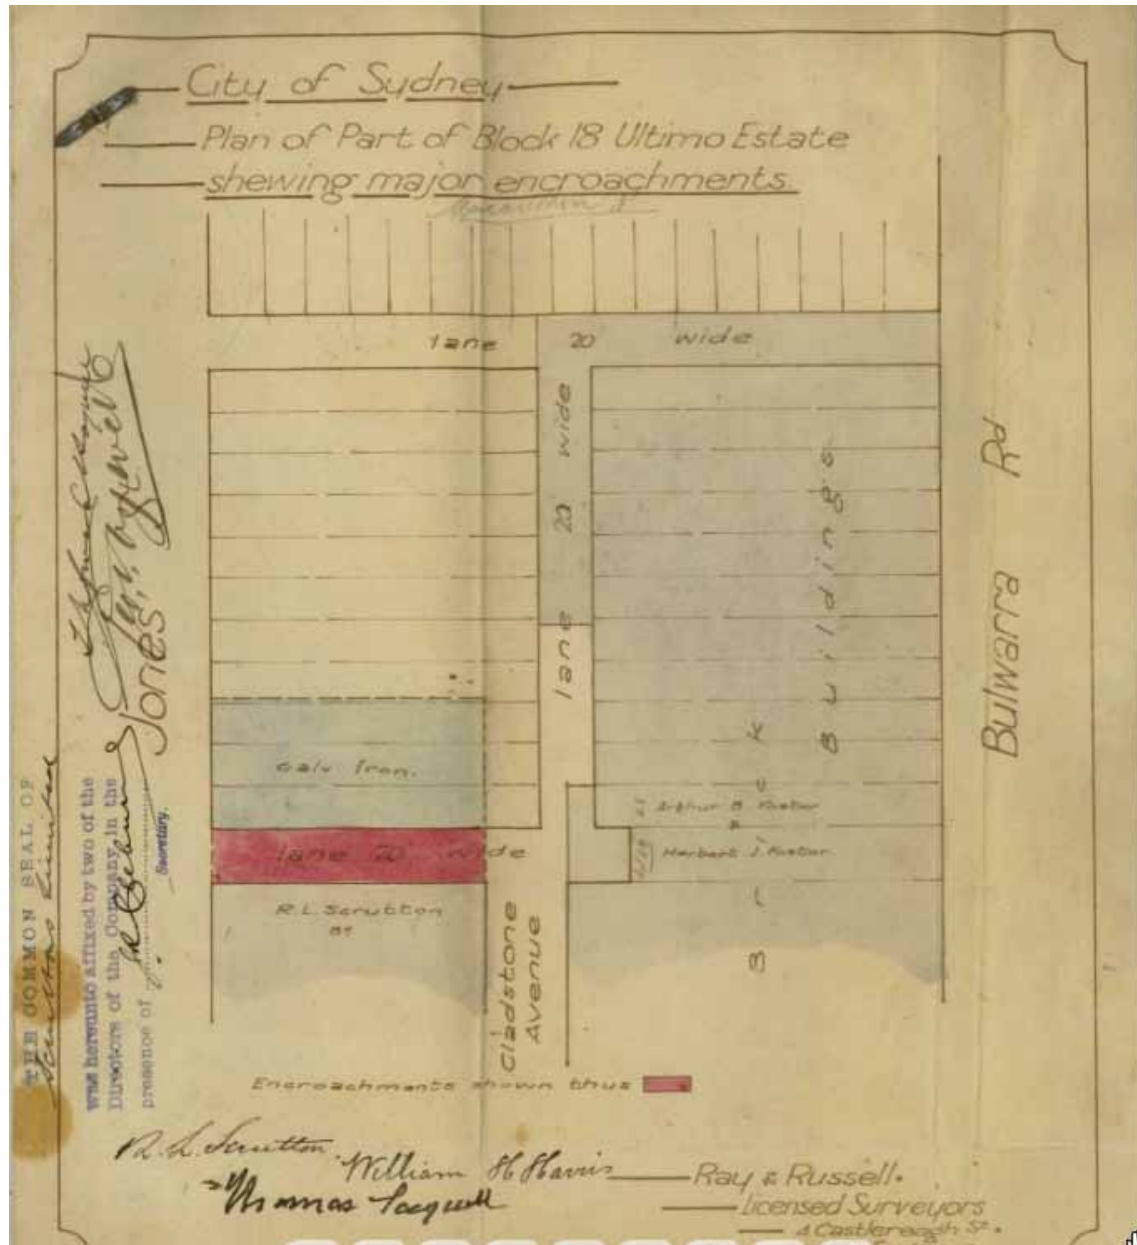 City of Sydney
Plan of Part of Block 18 Ultimo Estate
shewing major encroachments.
lane 20 wide
lane 20 wide
Bulwarra Rd
Brick Buildings
Galv Iron.
Arthur B Foster
lane 20 wide
Herbert J. Foster
R. L. Scrutton
Gladstone
Avenue
Encroachments shown thus
THE COMMON SEAL OF
Scruttons Limited
was hereunto affixed by two of the
Directors of the Company, in the
presence of
Jones
Secretary.
R. L. Scrutton.
William H Harris
Thomas
Ray & Russell.
Licensed Surveyors
4 Castlereagh St.